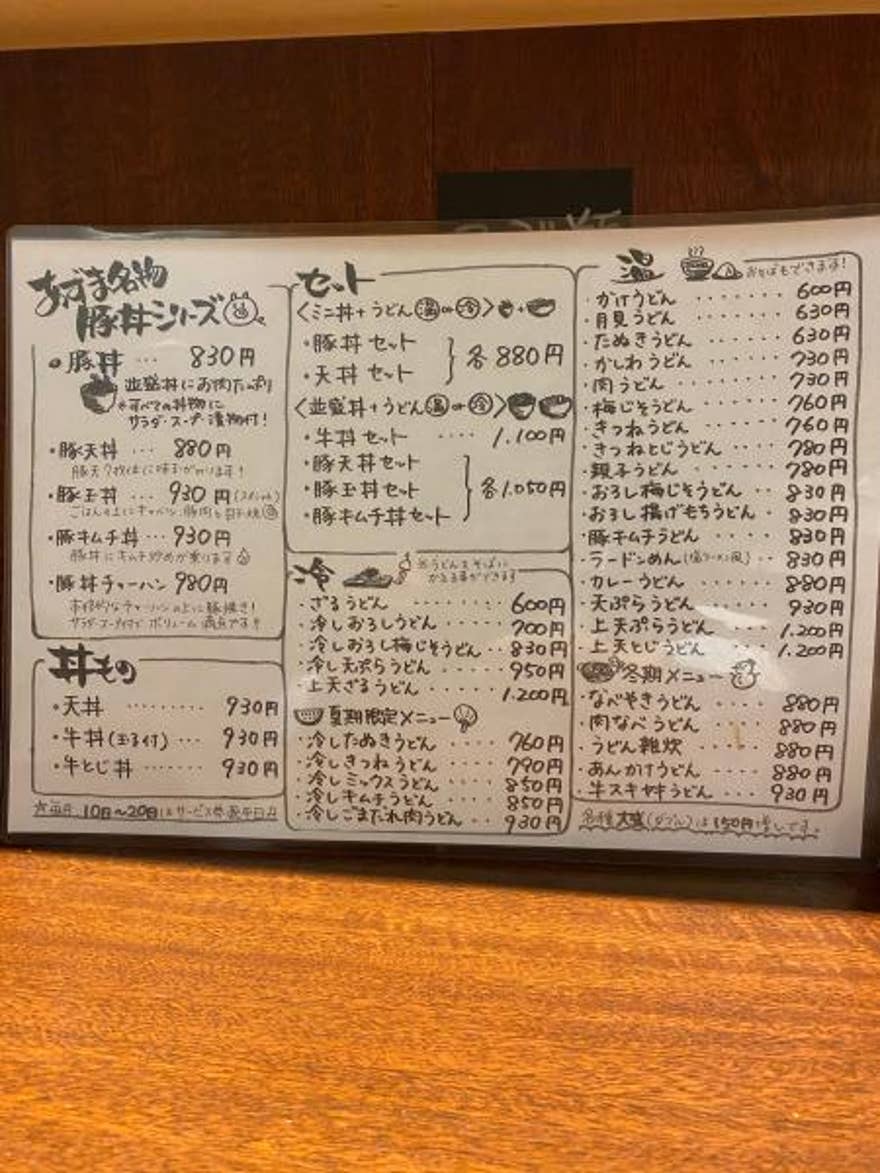 あづま名物
豚丼シリーズ
・豚丼 … 830円
並盛丼にお肉たっぷり
*すべての丼物に
サラダ・スープ・漬物付!
・豚天丼 … 880円
・豚玉丼 … 930円
・豚キムチ丼 … 930円
豚丼にキムチ炒めが乗ります
・豚丼チャーハン 980円
本格的なチャーハンの上に豚焼き!
サラダ・スープ付で ボリューム満点です!!
丼もの
・天丼 ……… 930円
・牛丼(玉子付) … 930円
・牛とじ丼 930円
☆毎月 10日〜20日はサービス券
セット
〈ミニ丼+うどん 温or冷〉
・豚丼セット
・天丼セット
各880円
〈並盛丼+うどん 温or冷〉
・牛丼セット …. 1.100円
・豚天丼セット
・豚玉丼セット
・豚キムチ丼セット
各1.050円
冷
※うどんをそばに
かえる事ができます
・ざるうどん ……. 600円
・冷しおろしうどん …. 700円
・冷しおろし梅じそうどん .. 830円
・冷し天ぷらうどん …. 950円
・上天ざるうどん ….. 1.200円
夏期限定メニュー
・冷したぬきうどん …. 760円
・冷しきつねうどん …. 790円
・冷しミックスうどん …. 850円
・冷しキムチうどん …. 850円
・冷しごまだれ肉うどん .. 930円
温
おそばもできます!
・かけうどん ……. 600円
・月見うどん ……. 630円
・たぬきうどん …… 630円
・かしわうどん …… 730円
・肉うどん ……. 730円
・梅じそうどん ….. 760円
・きつねうどん ….. 760円
・きつねとじうどん …. 780円
・親子うどん …… 780円
・おろし梅じそうどん .. 830円
・おろし揚げもちうどん . 830円
・豚キムチうどん …. 830円
・ラードンめん(塩ラーメン風) .. 830円
・カレーうどん ….. 880円
・天ぷらうどん ….. 930円
・上天ぷらうどん …. 1.200円
・上天とじうどん …. 1.200円
冬期メニュー
・なべやきうどん …. 880円
・肉なべうどん …. 880円
・うどん雑炊 ….. 880円
・あんかけうどん …. 880円
・牛スキヤキうどん …. 930円
各種大盛(ダブル)は150円増しです。